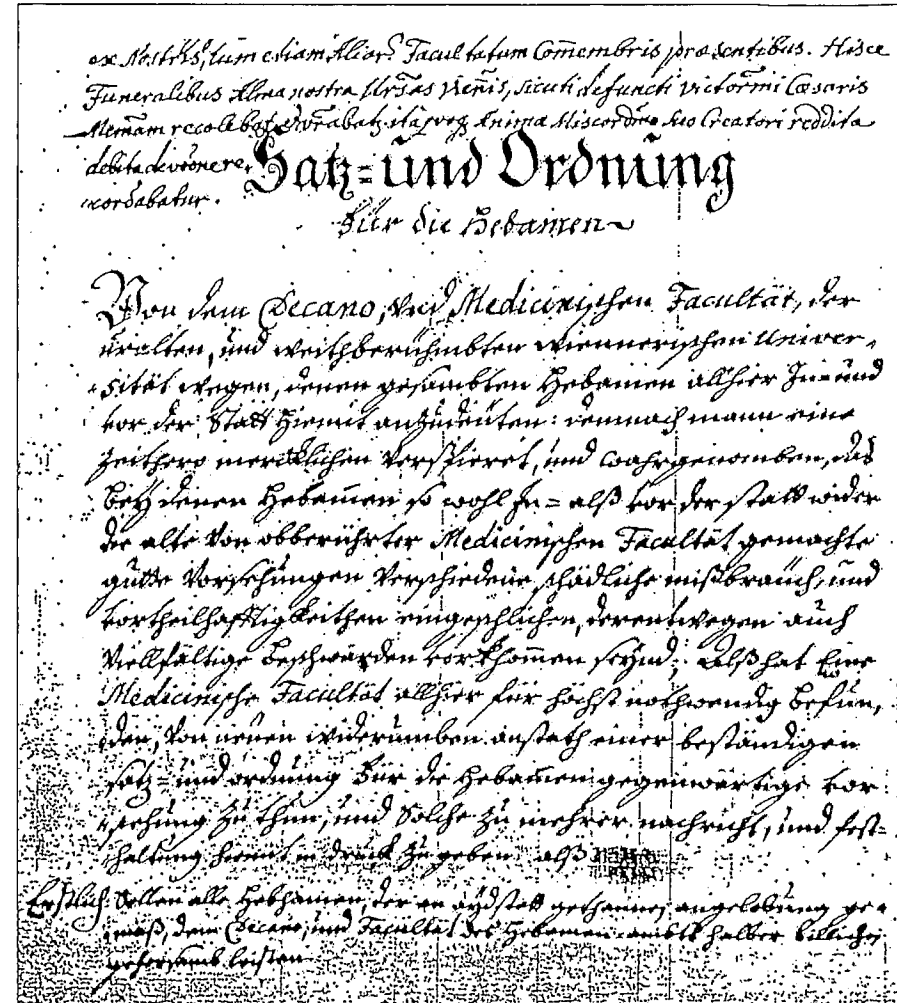 ex Nostris, tum etiam Aliar. Facultatum Com̄embris præsentibus. Hisce
Funeralibus Alma nostra Ursas Vieñis, sicuti defuncti Victorm̄i Cæsaris
Memam recolebat, itaq́ Animæ suo Creatori reddita
debita devöne re,
cordabatur.
Satz= und Ordnung
Für die Hebam̄en
Von dem Decano, und Medicinischen Facultät, der
uralten, und weithberühmbten Wiennerischen Univer,
sität wegen, denen gesambten Hebam̄en allhier In= und
vor der Statt hiemit anzudeuten: demnach mann eine
Zeithero mercklichen verspieret, und wahrgenomben, das
bey denen Hebam̄en so wohl In= alß vor der statt wider
die alte von obberührter Medicinischen Facultät gemachte
gutte Vorsehungen verschiedene schädliche mißbräuch, und
vortheilhafftigkeithen eingeschlichen, derentwegen auch
Villfältige beschwärden vorkhommen seynd; Alß hat Eine
Medicinische Facultät allhier für höchst nothwendig befun,
den, von neuen widerumben anstath einer beständigen
satz= und ordnung für die Hebam̄en gegenwärtige vor
sehung zu thun, und Solche zu mehrer nachricht, und fest=
haltung hiemit in druckh zu geben alß
Erstlich: Sollen alle Hebham̄en, der an aydstatt gethannen angelobung ge=
mäß, dem Decano, und Facultät des Hebam̄en ambts halber billichen
gehorsamb leisten